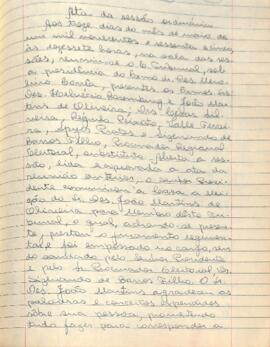 Ata da sessão ordinária
Aos treze dias do mês de maio de
um mil novecentos e sessenta e cinco,
às dezessete horas, na sala das ses-
sões, reuniu-se o E. Tribunal, sob
a presidência do Exmo Sr. Des.
presentes os Exmos Srs
Des. e João Mar-
tins de Oliveira, Drs.
Valle Ferrei-
ra, e Sigismundo de
Barros Filho, Procurador Regional
Eleitoral, substituto. Aberta a ses-
são, lida e aprovada a ata da
reunião anterior, o Exmo Presi-
dente comunicou à Casa a elei-
ção do Sr. Des. João Martins de
Oliveira para Membro deste Tri-
bunal, o qual, achando-se presen-
te, prestou o juramento regimen-
tal e foi empossado no cargo, sen-
do saudado pelo Senhor Presidente
e pelo Sr Procurador Eleitoral, Dr.
Sigismundo de Barros Filho. O Sr.
Des. João Martins agradeceu as
palavras e conceitos expendidos
sôbre sua pessoa, prometendo
tudo fazer para corresponder a